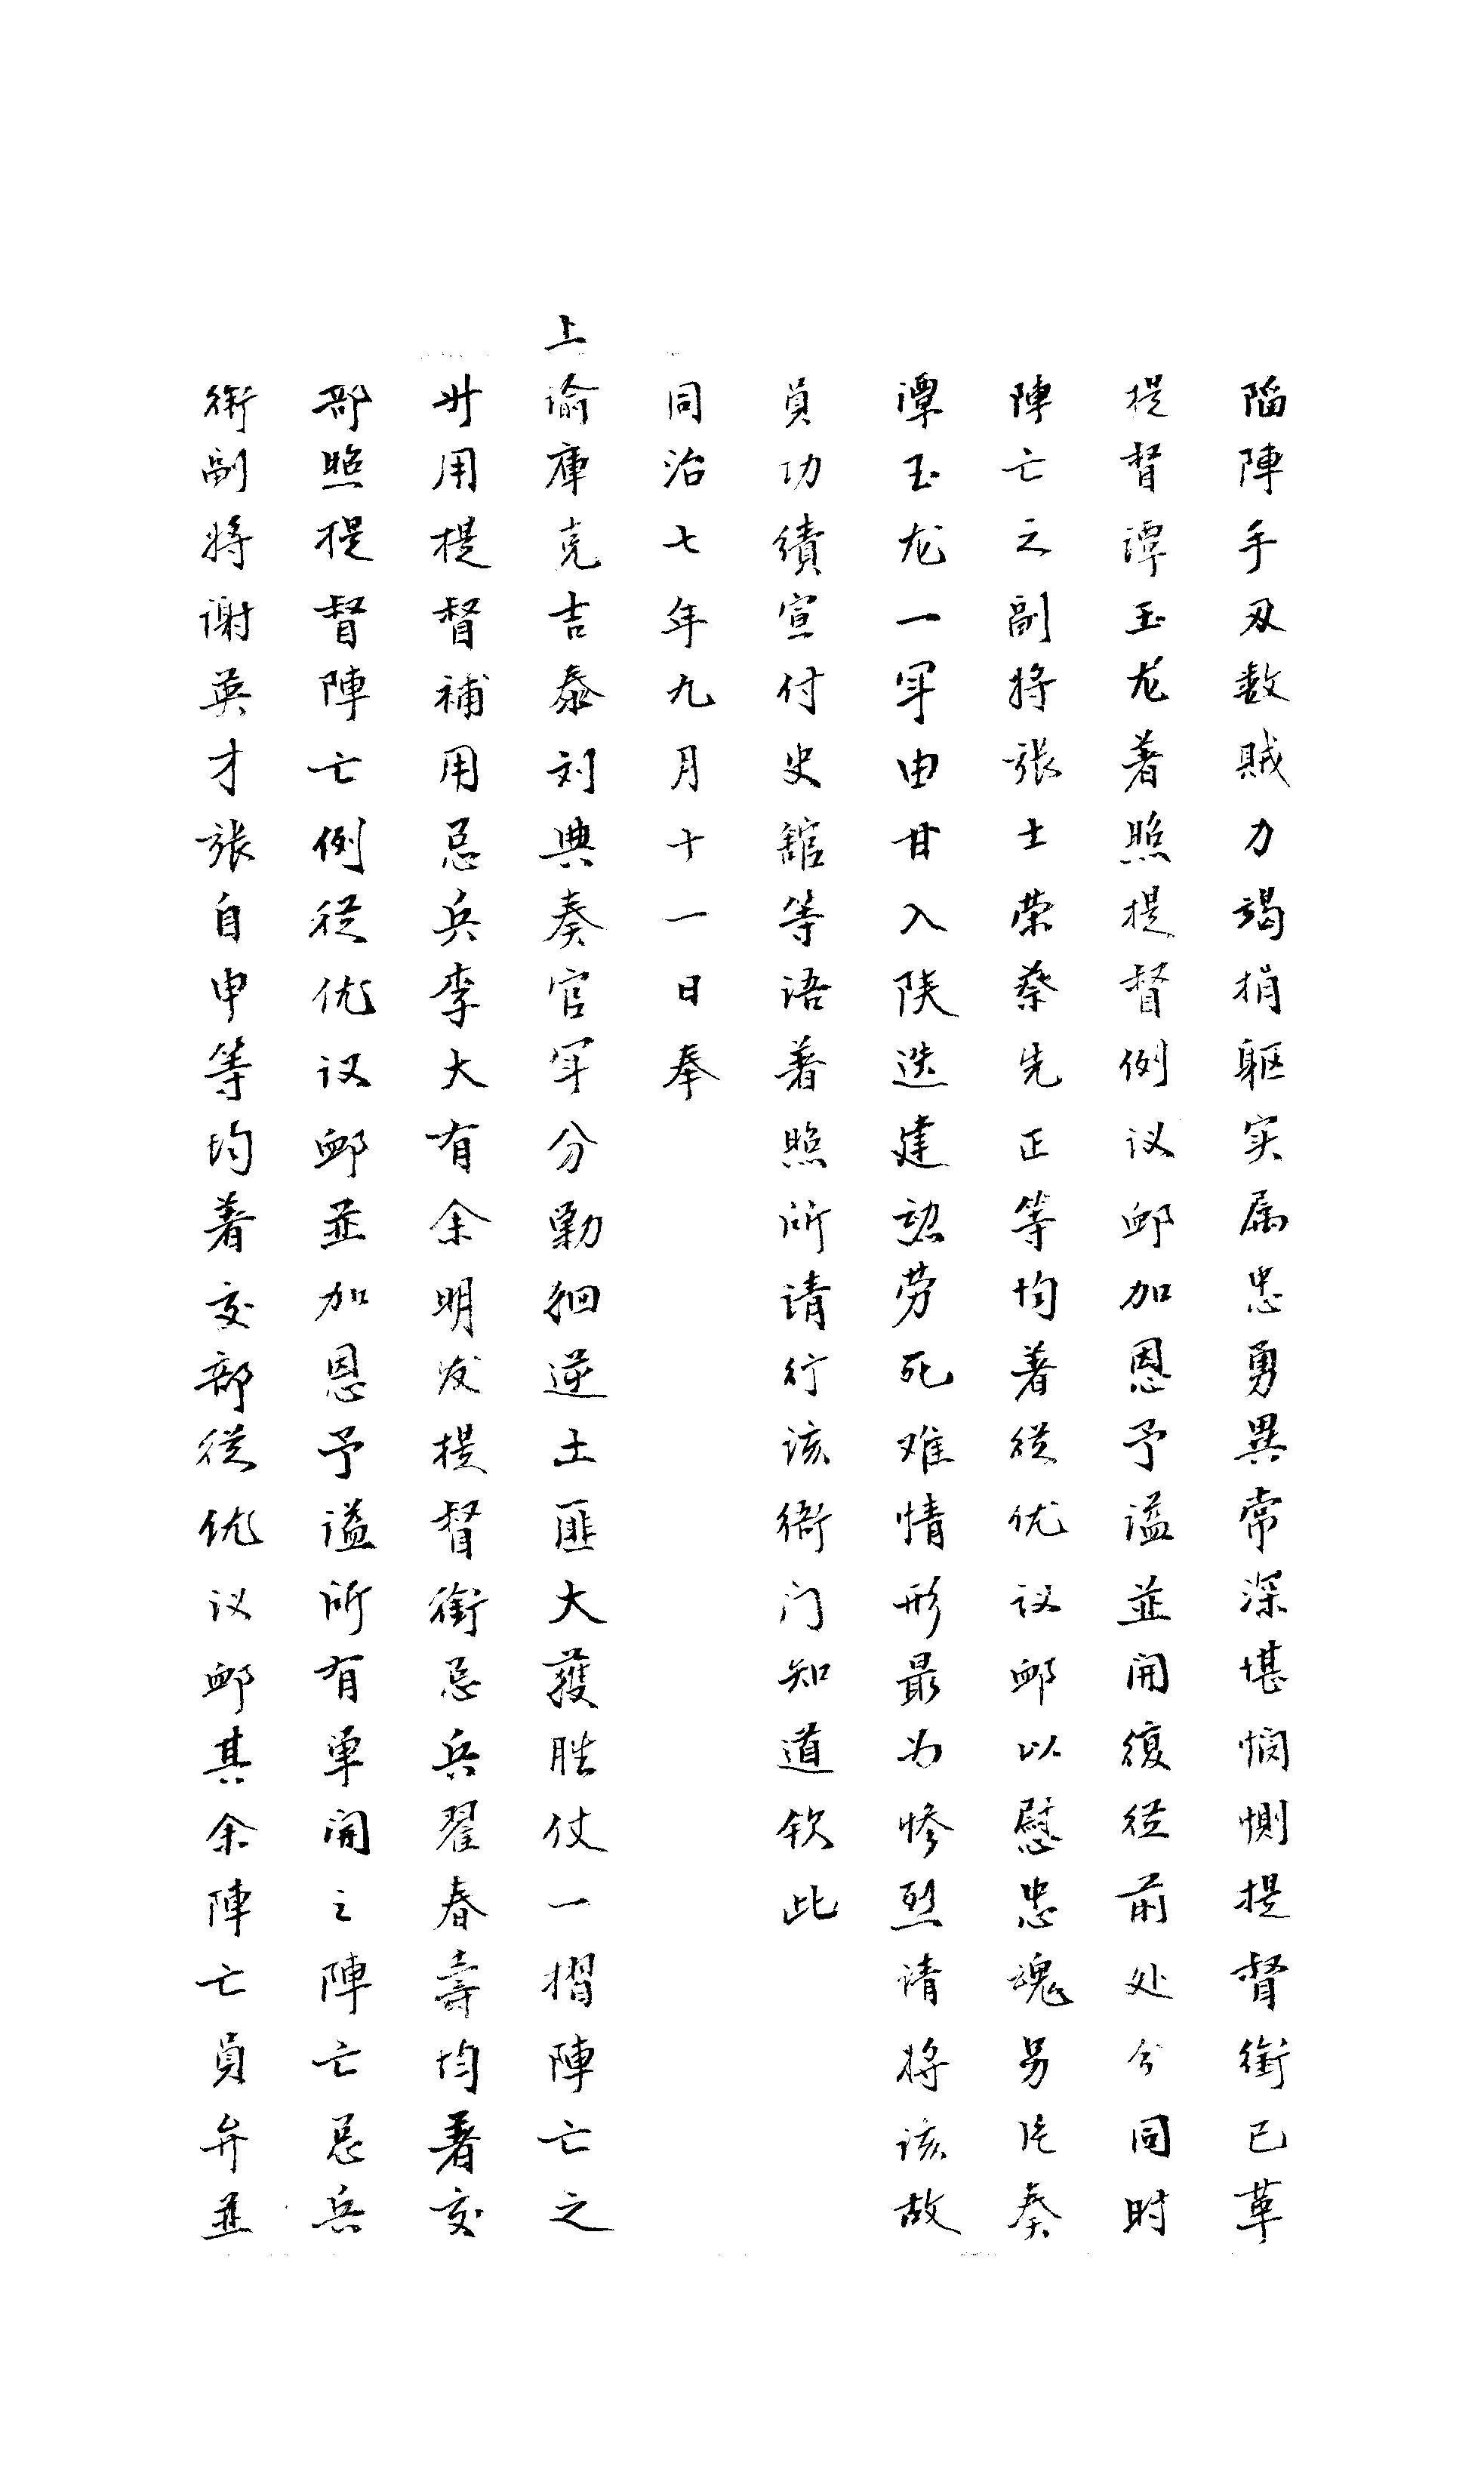 陷陣手刃数贼力竭捐躯实属忠勇異常深堪悯恻提督銜已革
提督谭玉龙著照提督例议卹加恩予谥並開復從前处分同时
陣亡之副将张士荣蔡先正等均著從优议卹以慰忠魂另片奏
谭玉龙一军由甘入陕迭建功劳死难情形最为惨烈请将该故
員功績宣付史舘等语著照所请行该衙门知道钦此
同治七年九月十一日奉
上谕庫克吉泰刘典奏官军分勦徊逆土匪大獲胜仗一摺陣亡之
升用提督補用总兵李大有余明发提督銜总兵翟春壽均著交
部照提督陣亡例從优议卹並加恩予谥所有单開之陣亡总兵
銜副将谢英才张自申等均著交部從优议卹其余陣亡員弁並